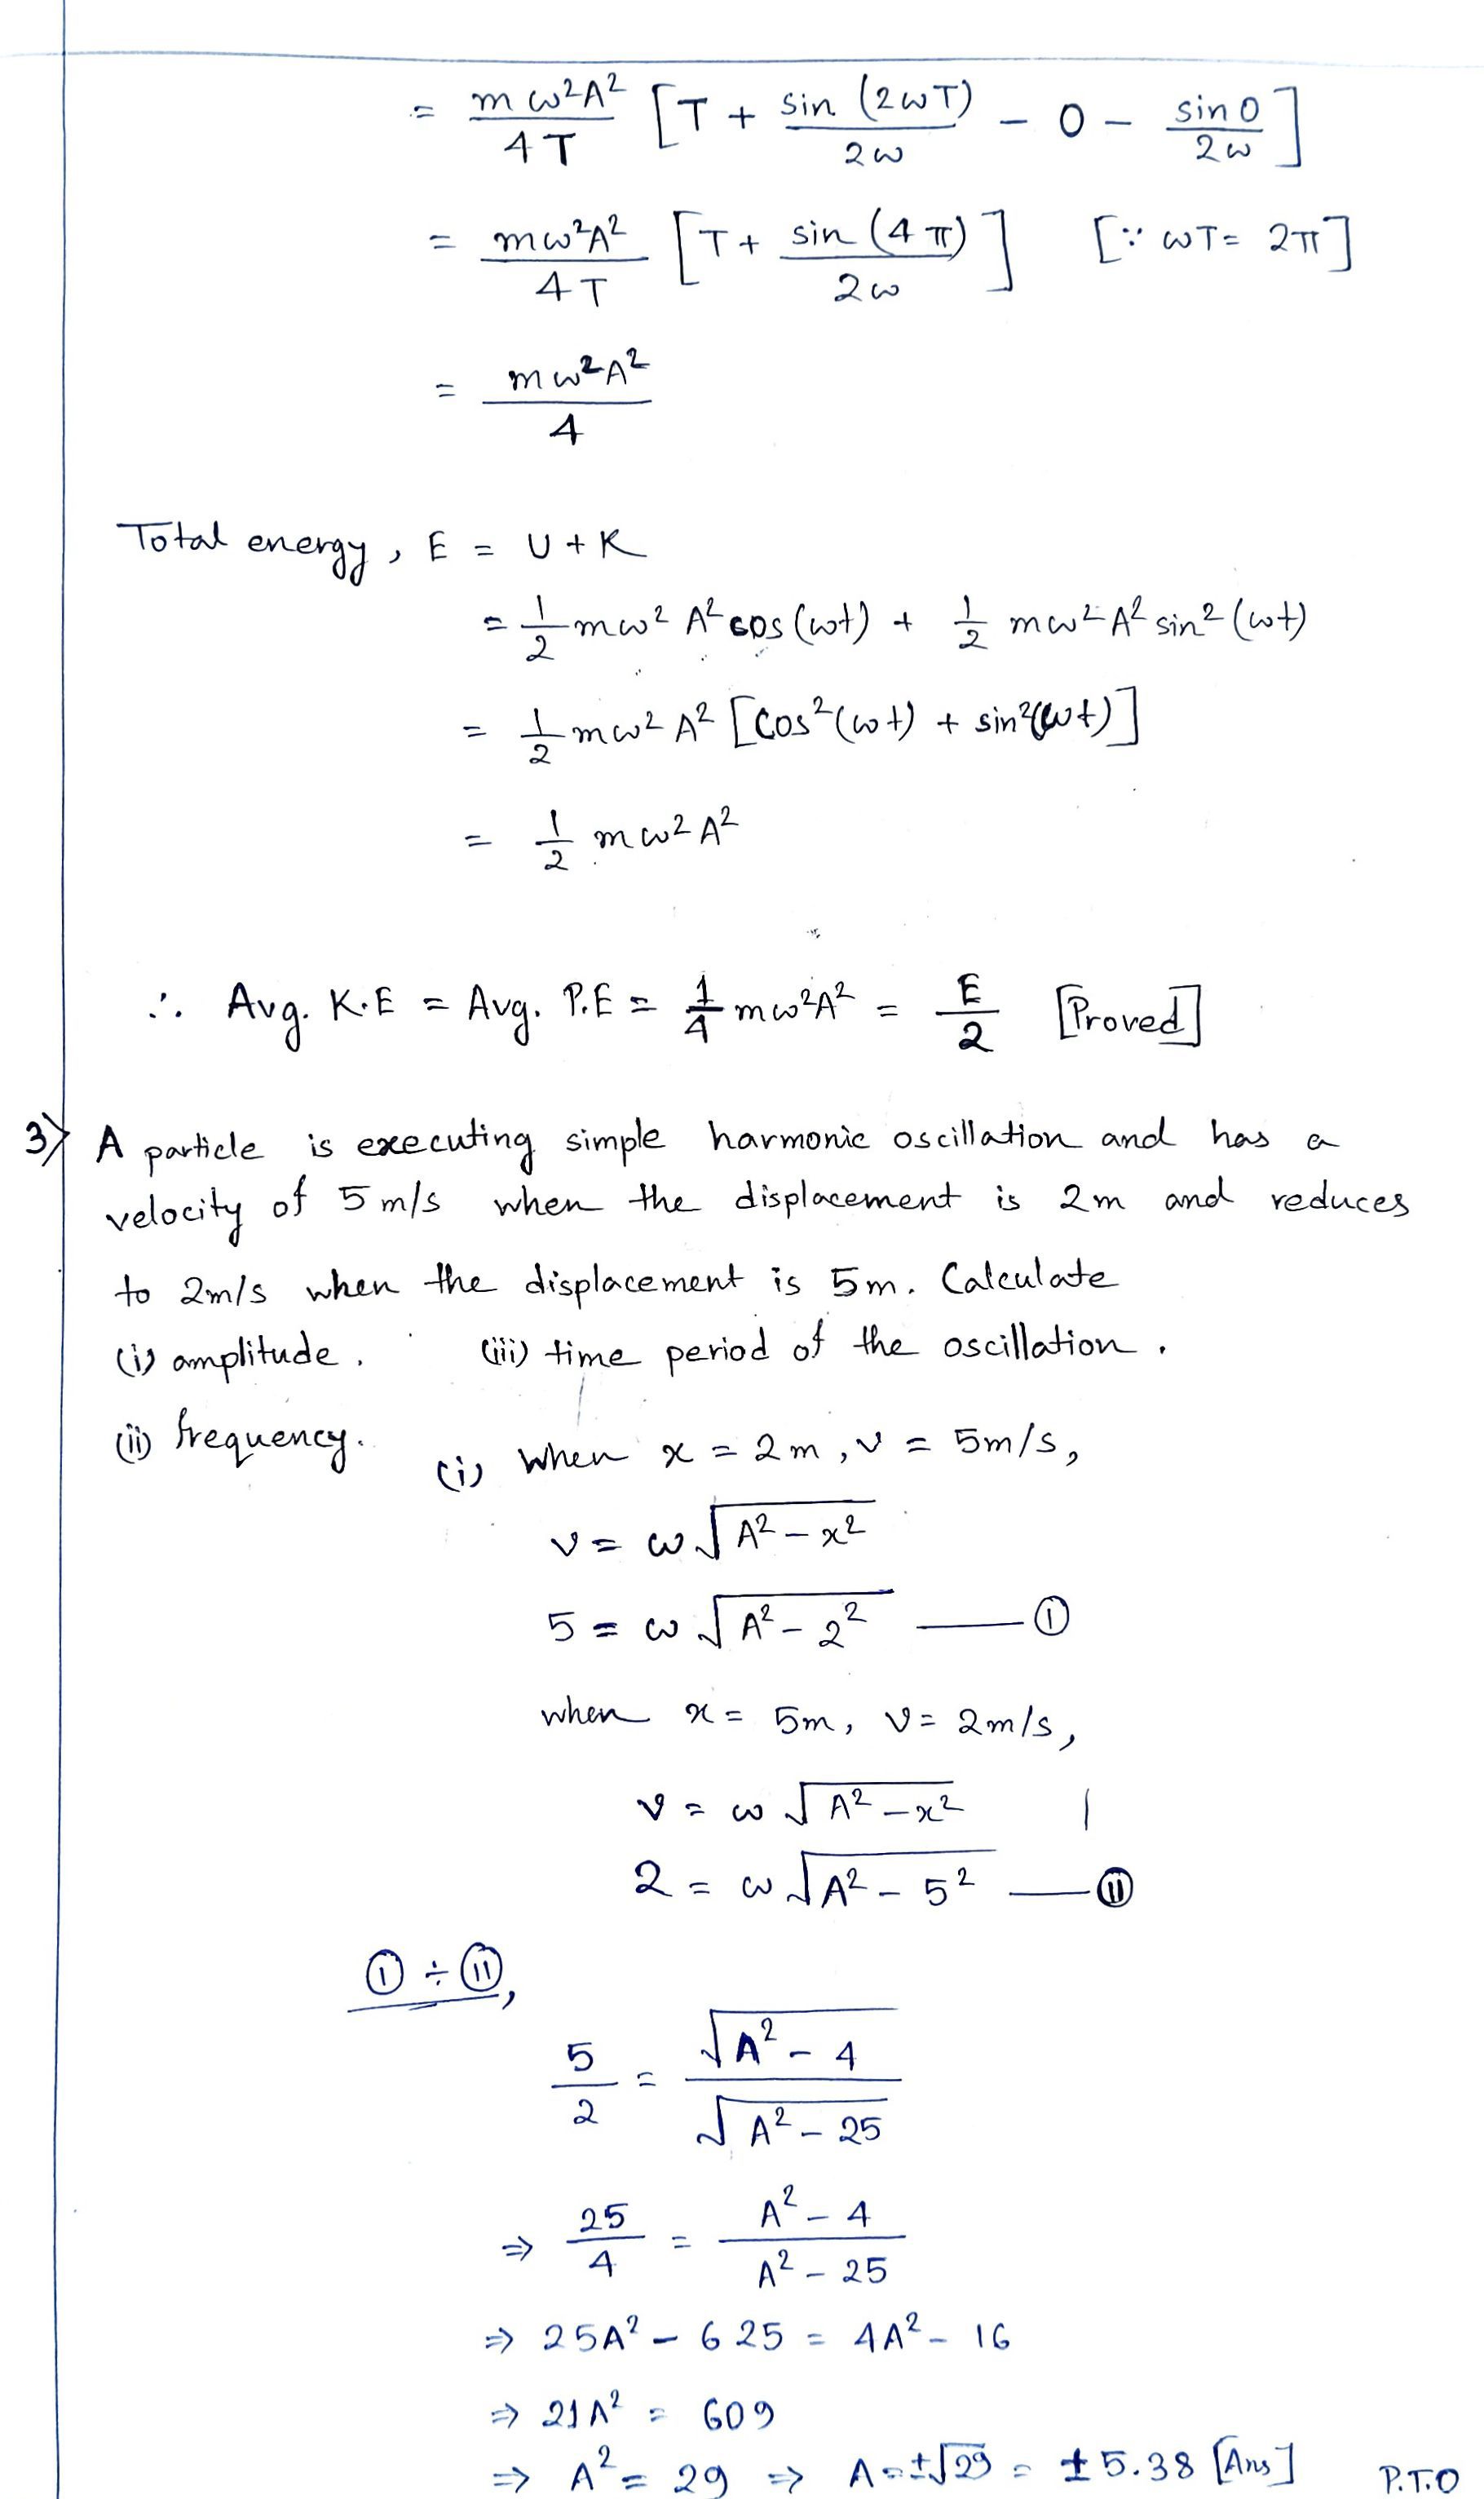 = mω²A²/4T [T + sin (2ωT)/2ω - 0 - sin0/2ω]
= mω²A²/4T [T + sin (4π)/2ω] [∵ ωT = 2π]
= mω²A²/4
Total energy, E = U + K
= 1/2 mω² A² cos(ωt) + 1/2 mω² A² sin² (ωt)
= 1/2 mω² A² [cos²(ωt) + sin²(ωt)]
= 1/2 mω² A²
∴ Avg. K.E = Avg. P.E = 1/4 mω²A² = E/2 [Proved]
3) A particle is executing simple harmonic oscillation and has a
velocity of 5 m/s when the displacement is 2m and reduces
to 2m/s when the displacement is 5m. Calculate
(i) amplitude. (iii) time period of the oscillation.
(ii) frequency.
(i) When x = 2m, v = 5m/s,
v = ω √(A² - x²)
5 = ω √(A² - 2²) —— (I)
when x = 5m, v = 2m/s,
v = ω √(A² - x²)
2 = ω √(A² - 5²) —— (II)
(I) ÷ (II),
5/2 = √(A² - 4)/√(A² - 25)
⇒ 25/4 = (A² - 4)/(A² - 25)
⇒ 25A² - 625 = 4A² - 16
⇒ 21A² = 609
⇒ A² = 29 ⇒ A = ±√29 = ±5.38 [Ans] P.T.O